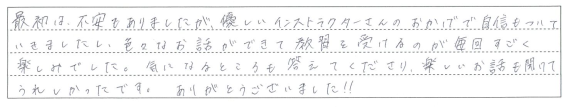 最初は、不安もありましたが、優しいインストラクターさんのおかげで自信もついて
いきましたし、色々なお話ができて教習を受けるのが毎回すごく
楽しみでした。気になるところも答えてくださり、楽しいお話も聞けて
うれしかったです。ありがとうございました!!